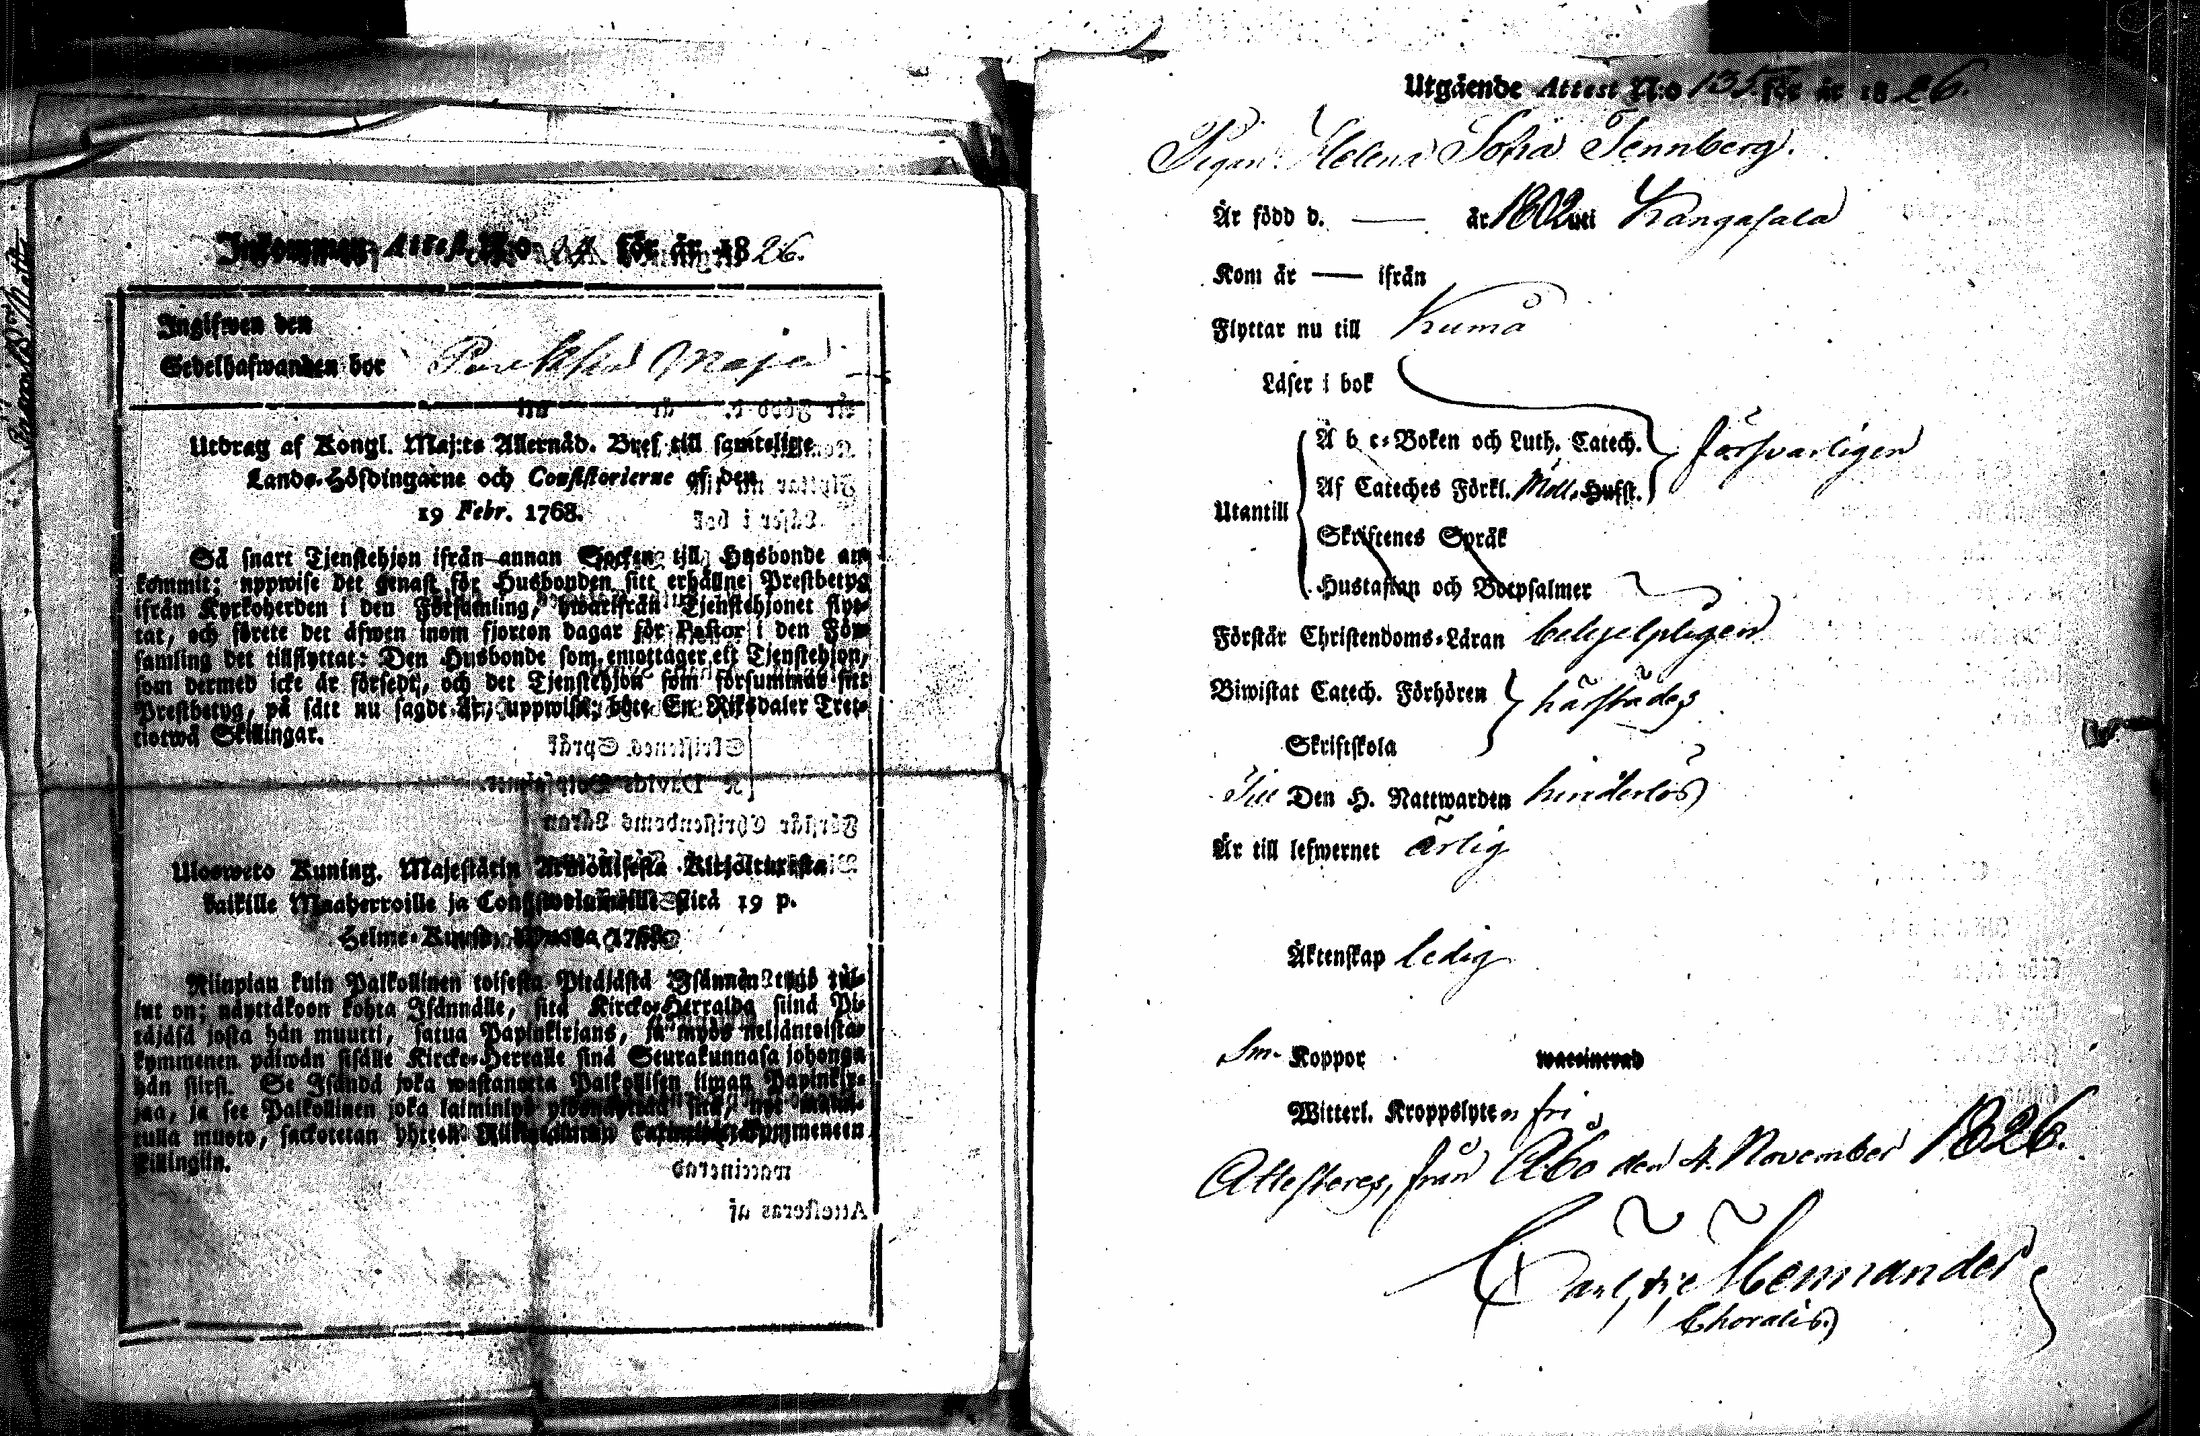 Inkommen Attest N:o 24 för år 1826.
Ingifwen den
Sedelhafwanden bor Maja
Utdrag af Kongl. Maj:ts Allernåd. Bref till samtelige
Lands-Höfdingarne och Consistorierne af den
19 Febr. 1768.
Så snart Tjenstehjon ifrån annan Socken till Husbonde an-
kommit; uppwise det genast för Husbonden sitt erhållne Prestbetyg
ifrån Kyrkoherden i den Församling, hwarifrån Tjenstehjonet flyt-
tat, och förete det äfwen inom fjorton dagar för Pastor i den För-
samling det tillflyttat: Den Husbonde som emottager ett Tjenstehjon,
som dermed icke är försedt, och det Tjenstehjon som försummar sitt
Prestbetyg, på sätt nu sagdt är, uppwisa; böte En Riksdaler Tret-
tiotwå Skillingar.
Ulosweto Kuning. Majestätin Armollisesta Kirjoituxesta
kaikille Maaherroille ja sitä 19 p.
Helme-Kuusa, 1768.
Niinpian kuin Palkollinen toisesta Pitäjästä Isännän tygö tul-
lut on; näyttäkoon kohta Isännälle, sitä Kircko-Herralda siinä Pi-
täjäsä josta hän muutti, saatua Papinkirjans, ja myös neljäntoista-
kymmenen päiwän sisälle Kircko-Herralle siinä Seurakunnasa johonga
hän siirsi. Se Isändä joka wastanotta Palkollisen ilman Papinkir-
jaa, ja se Palkollinen joka laiminlyö sitä, nyt maini-
tulla muoto, sackotetan yhteen kymmeneen
killingiin.
Utgående Attest N:o 135 för år 1826.
Pigan Helena Sofia Tennberg.
Är född d. — år 1802 uti Kangasala
Kom år — ifrån
Flyttar nu till Kumo
Läser i bok
A b c-Boken och Luth. Catech. försvarligen
Af Cateches Förkl. Moll. Husst.
Utantill
Skriftenes Språk
Hustaflan och Botpsalmer
Förstår Christendoms-Läran behjelpligen
Biwistat Catech. Förhören härstädes
Skriftskola
Till Den H. Nattwarden hinderlös
Är till lefwernet ärlig
Äktenskap ledig
Sm- Koppor waccinerad
Witterl. Kroppslyten fri
Attesteras, från Åbo den 4. November 1826.
Hennander